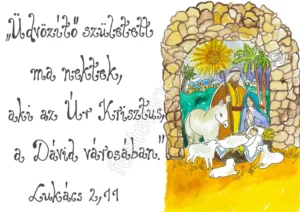 „Üdvözítő született
ma nektek,
aki az Úr Krisztus,
a Dávid városában."
Lukács 2,11